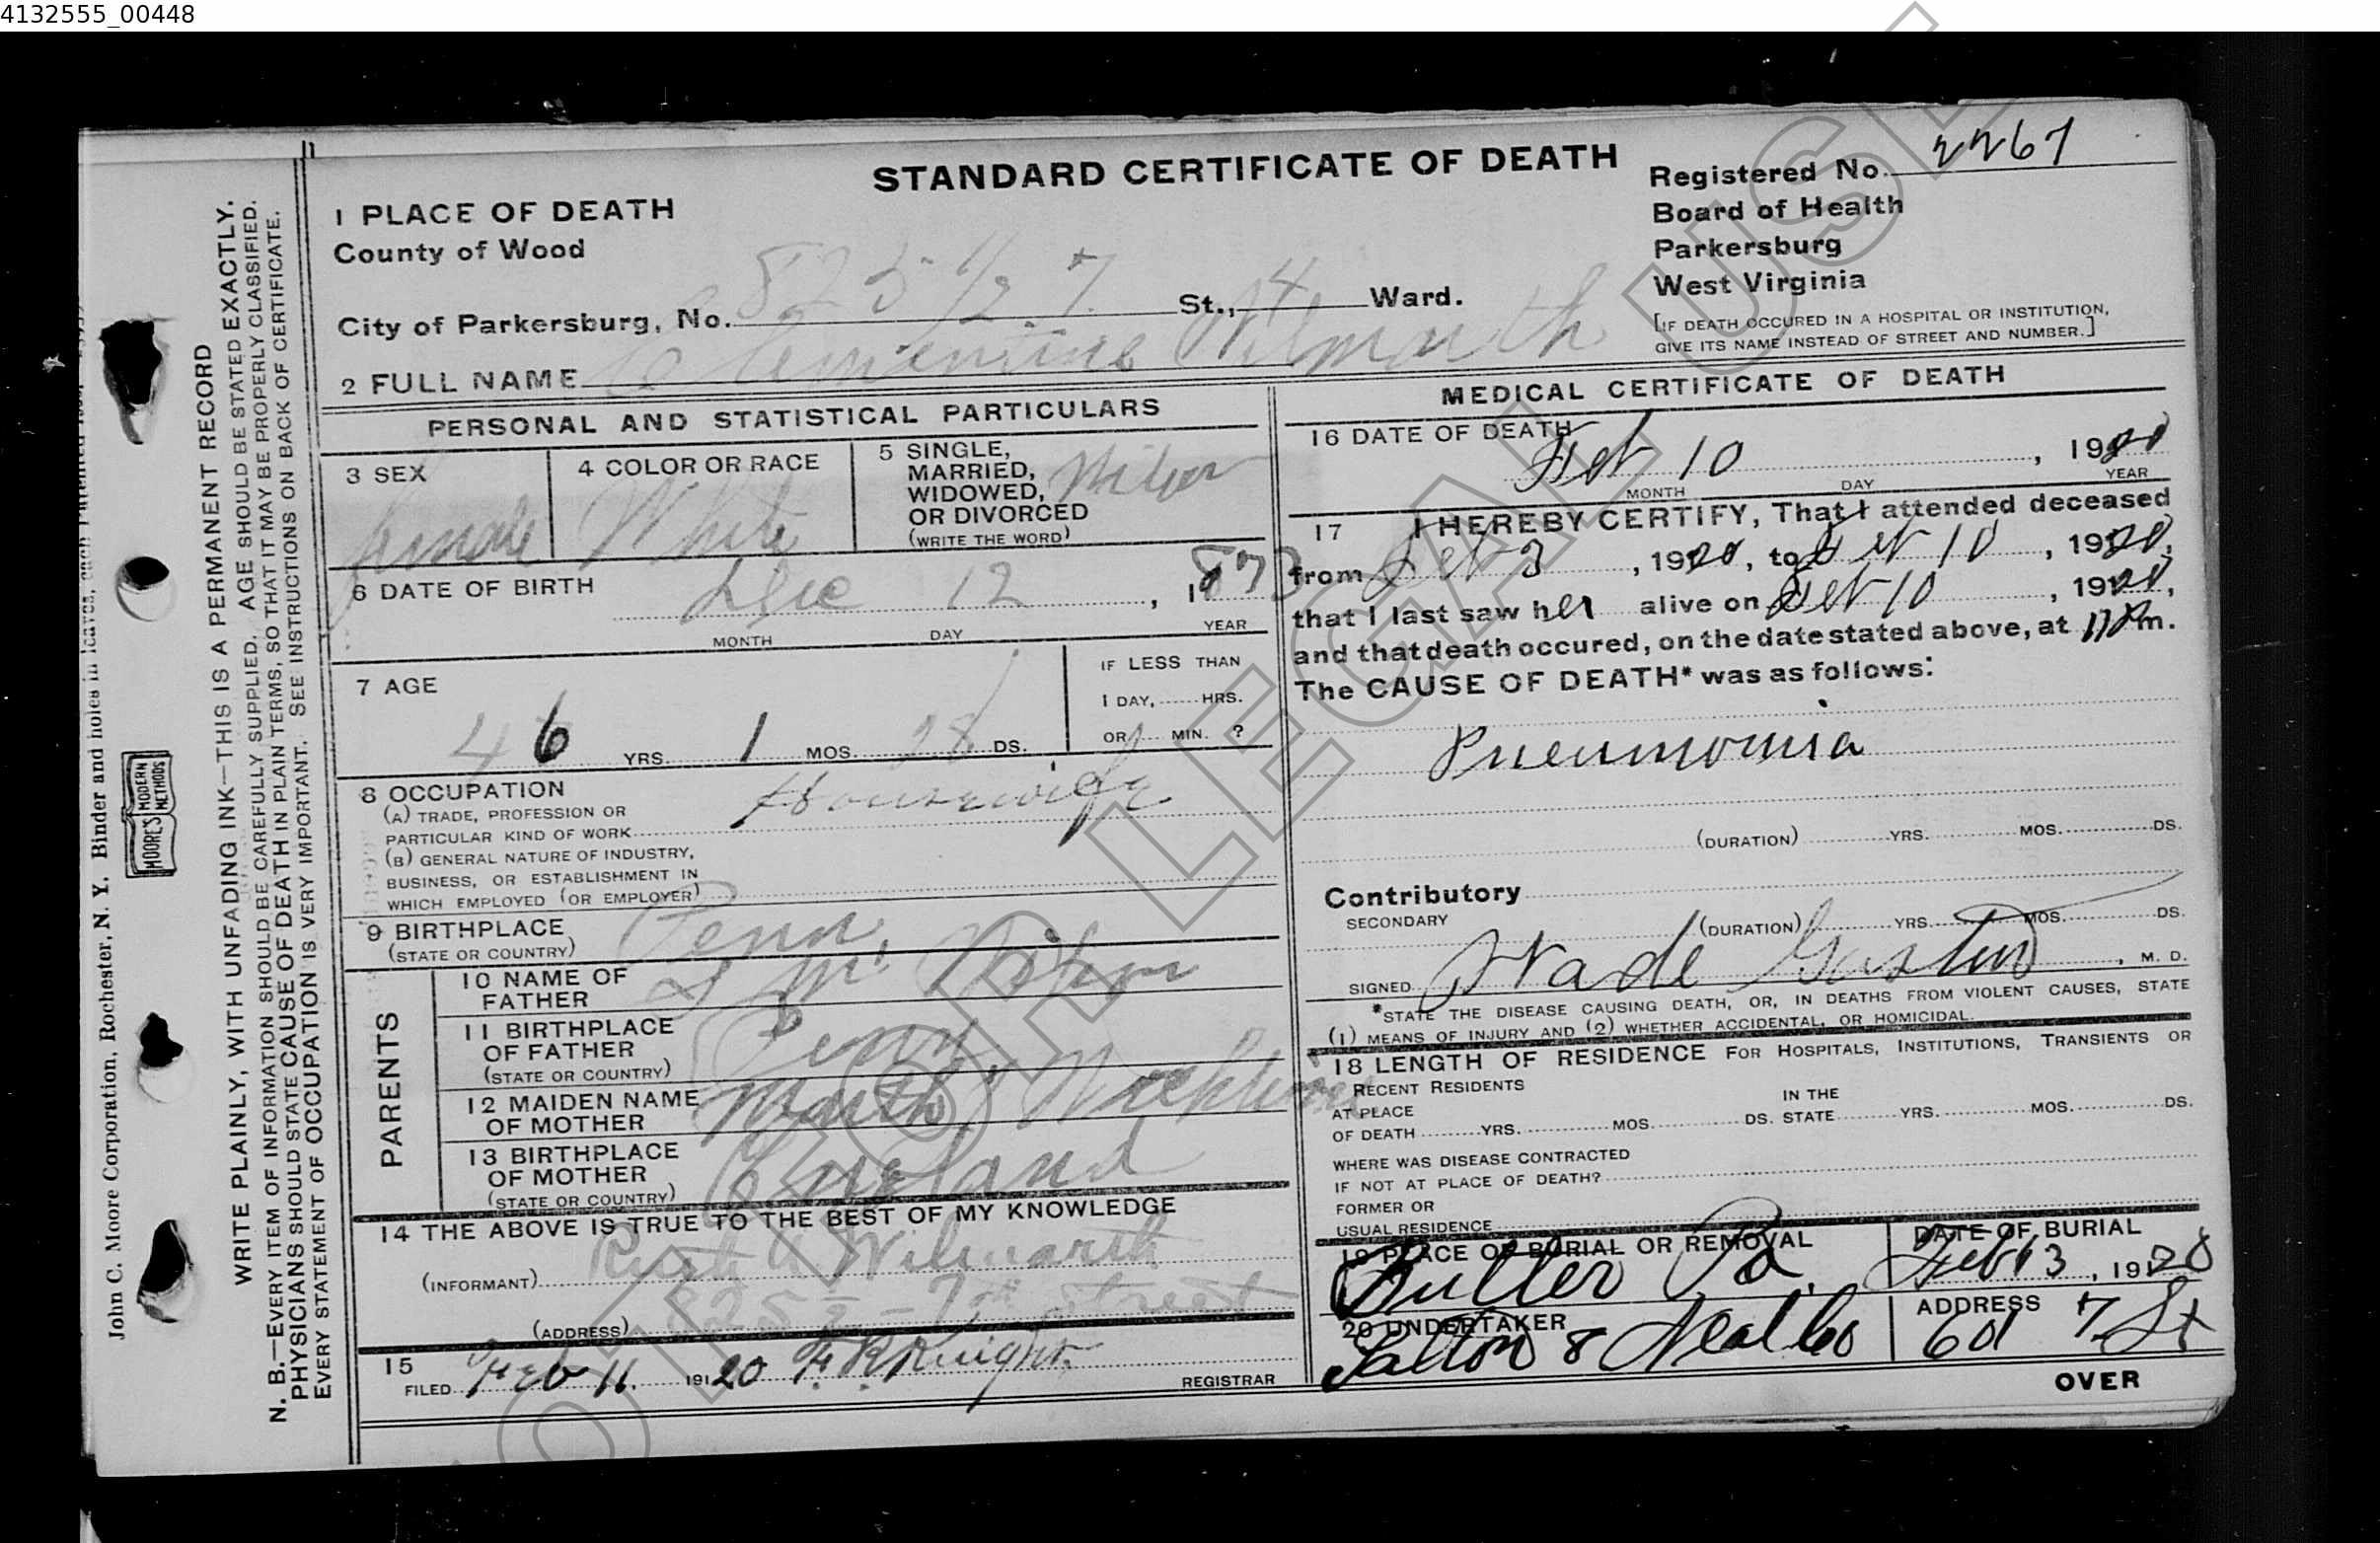 4132555_00448
STANDARD CERTIFICATE OF DEATH
Registered No. 2267
Board of Health
Parkersburg
West Virginia
[IF DEATH OCCURED IN A HOSPITAL OR INSTITUTION,
GIVE ITS NAME INSTEAD OF STREET AND NUMBER.]
1 PLACE OF DEATH
County of Wood
City of Parkersburg, No. 825 1/2 7 St., 4 Ward.
2 FULL NAME Clementine Wilmarth
PERSONAL AND STATISTICAL PARTICULARS
3 SEX
female
4 COLOR OR RACE
White
5 SINGLE,
MARRIED,
WIDOWED,
OR DIVORCED
(WRITE THE WORD)
6 DATE OF BIRTH Dec 12, 1873
MONTH DAY YEAR
7 AGE
46 YRS. 1 MOS. 28 DS.
IF LESS THAN
1 DAY, HRS.
OR MIN. ?
8 OCCUPATION
(A) TRADE, PROFESSION OR
PARTICULAR KIND OF WORK Housewife
(B) GENERAL NATURE OF INDUSTRY,
BUSINESS, OR ESTABLISHMENT IN
WHICH EMPLOYED (OR EMPLOYER)
9 BIRTHPLACE
(STATE OR COUNTRY) Penn.
PARENTS
10 NAME OF
FATHER
11 BIRTHPLACE
OF FATHER
(STATE OR COUNTRY) Penn
12 MAIDEN NAME
OF MOTHER
13 BIRTHPLACE
OF MOTHER
(STATE OR COUNTRY) England
14 THE ABOVE IS TRUE TO THE BEST OF MY KNOWLEDGE
(INFORMANT) Ruth A Wilmarth
(ADDRESS) 825 1/2 - 7th Street
15
FILED Feb 11. 19120 F. R. Knight REGISTRAR
MEDICAL CERTIFICATE OF DEATH
16 DATE OF DEATH
Feb 10, 1920
MONTH DAY YEAR
17 I HEREBY CERTIFY, That I attended deceased
from Feb 3, 1920, to Feb 10, 1920,
that I last saw her alive on Feb 10, 1920,
and that death occured, on the date stated above, at 11 P m.
The CAUSE OF DEATH* was as follows:
Pneumonia
(DURATION) YRS. MOS. DS.
Contributory
SECONDARY
(DURATION) YRS. MOS. DS.
SIGNED Wade Gaston, M. D.
*STATE THE DISEASE CAUSING DEATH, OR, IN DEATHS FROM VIOLENT CAUSES, STATE
(1) MEANS OF INJURY AND (2) WHETHER ACCIDENTAL, OR HOMICIDAL.
18 LENGTH OF RESIDENCE FOR HOSPITALS, INSTITUTIONS, TRANSIENTS OR
RECENT RESIDENTS
AT PLACE
OF DEATH YRS. MOS. DS.
IN THE
STATE YRS. MOS. DS.
WHERE WAS DISEASE CONTRACTED
IF NOT AT PLACE OF DEATH?
FORMER OR
USUAL RESIDENCE
19 PLACE OF BURIAL OR REMOVAL
Butler Pa.
DATE OF BURIAL
Feb 13, 19120
20 UNDERTAKER
Patton & Neal Co
ADDRESS
601 7 St
OVER
WRITE PLAINLY, WITH UNFADING INK—THIS IS A PERMANENT RECORD
N. B.—EVERY ITEM OF INFORMATION SHOULD BE CAREFULLY SUPPLIED. AGE SHOULD BE STATED EXACTLY.
PHYSICIANS SHOULD STATE CAUSE OF DEATH IN PLAIN TERMS, SO THAT IT MAY BE PROPERLY CLASSIFIED.
EVERY STATEMENT OF OCCUPATION IS VERY IMPORTANT. SEE INSTRUCTIONS ON BACK OF CERTIFICATE.
John C. Moore Corporation, Rochester, N. Y. Binder and holes in leaves,
MOORE'S MODERN METHODS
FOR LEGAL USE